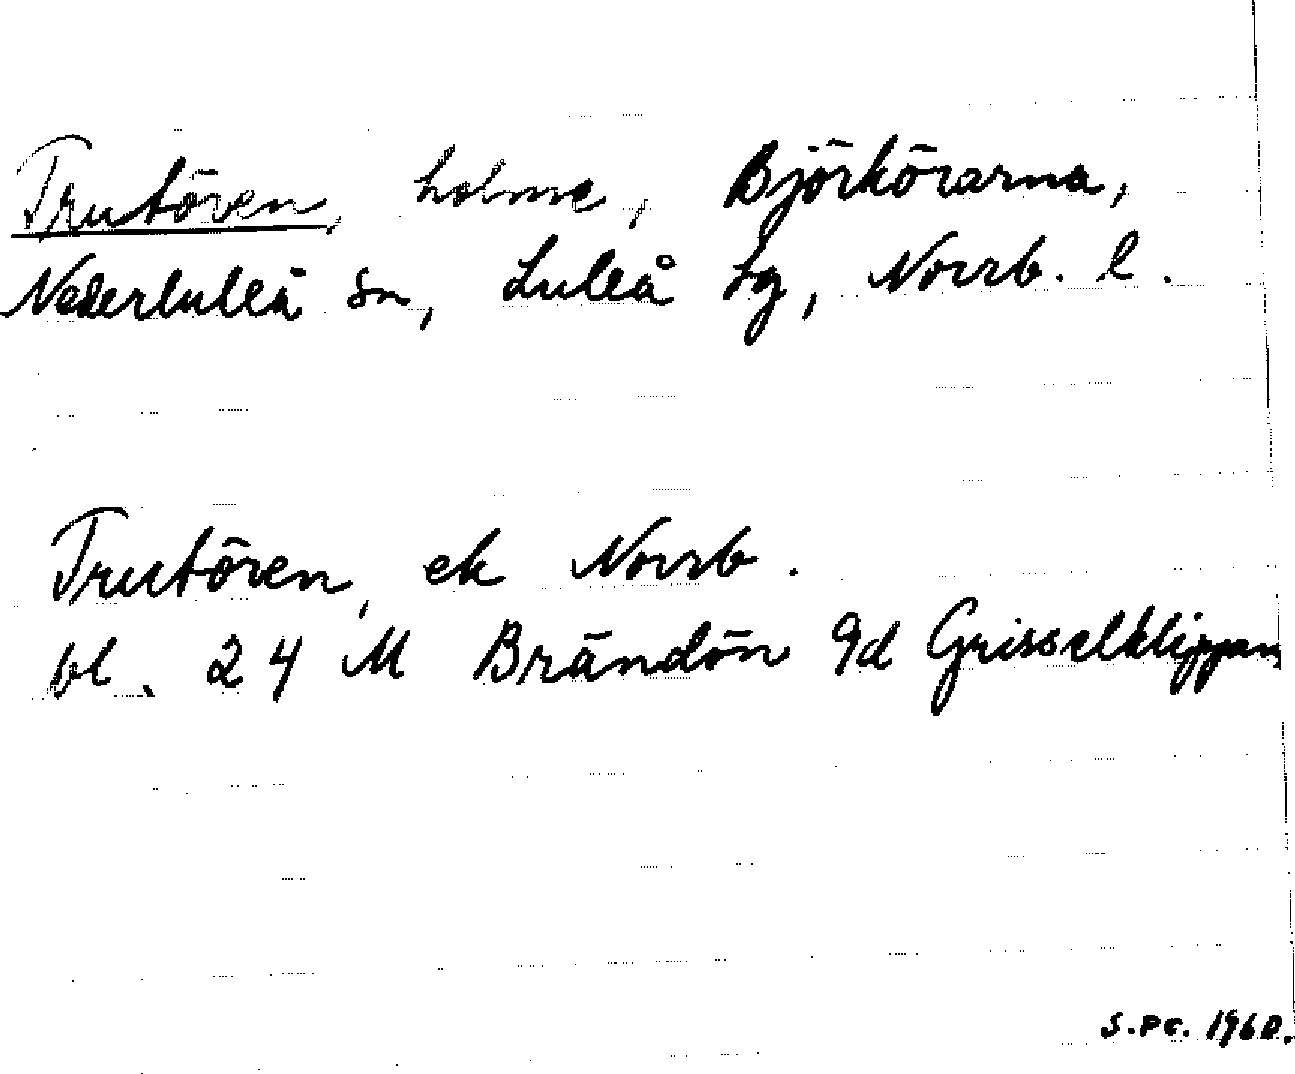 Trutören, holme, Björkörarna,
Nederluleå sn, Luleå tg, Norrb. l.
Trutören, ek Norrb.
bl. 24 M Brändön 9d Grisselklippan
S.PC. 1960.